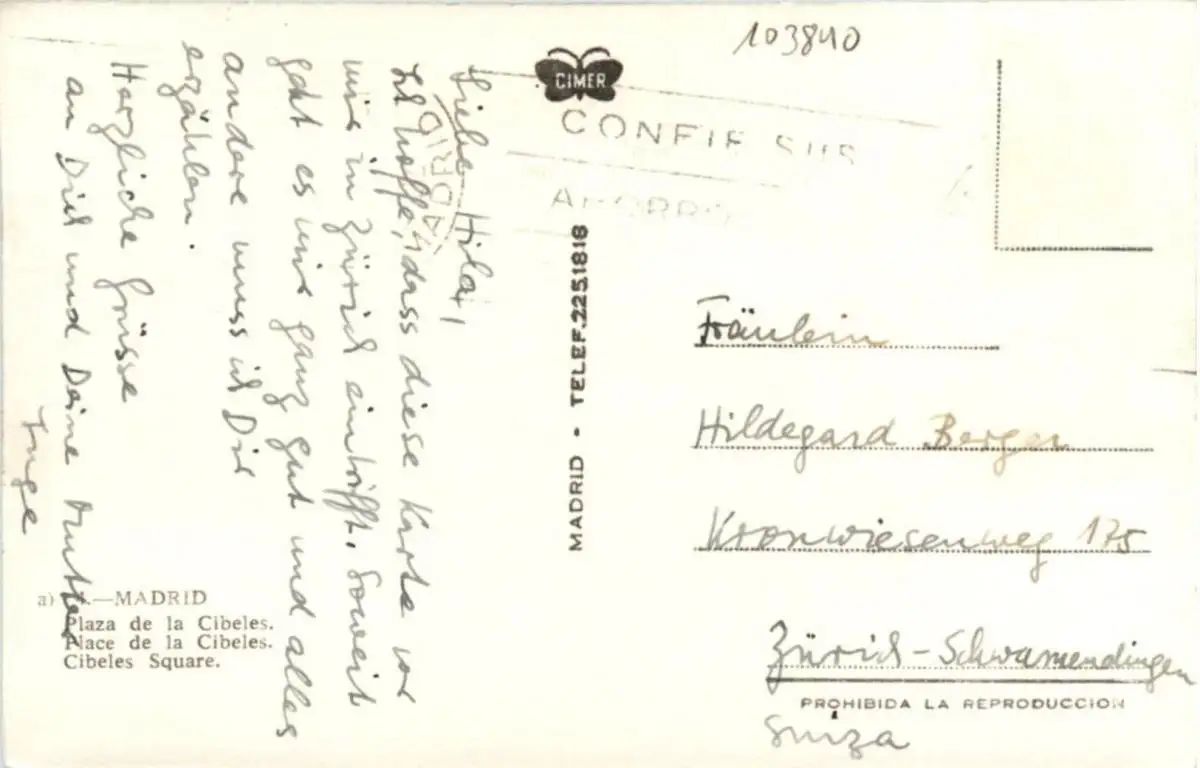 103840
CIMER
CONFIE SUS
AHORRO
Liebe Hilda,
Ich hoffe, dass diese Karte vor
mir in Zürich eintrifft. Soweit
geht es mir ganz gut und alles
andere muss ich Dir
erzählen.
Herzliche Grüsse
an Dich und Deine Mutter
Inge
MADRID - TELEF. 2251818
Fräulein
Hildegard Berger
Kronwiesenweg 175
Zürich-Schwamendingen
Suiza
PROHIBIDA LA REPRODUCCION
a) .—MADRID
Plaza de la Cibeles.
Place de la Cibeles.
Cibeles Square.